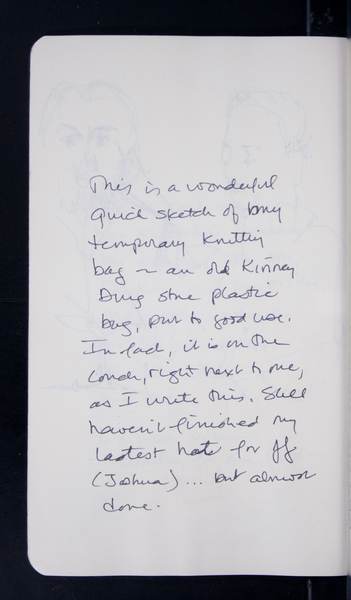 This is a wonderful
quick sketch of my
temporary knitting
bag ~ an old Kinney
Drug store plastic
bag, put to good use.
In fact, it is on the
couch, right next to me,
as I write this. Still
haven't finished my
lastest hat for JJ
(Joshua)... but almost
done.